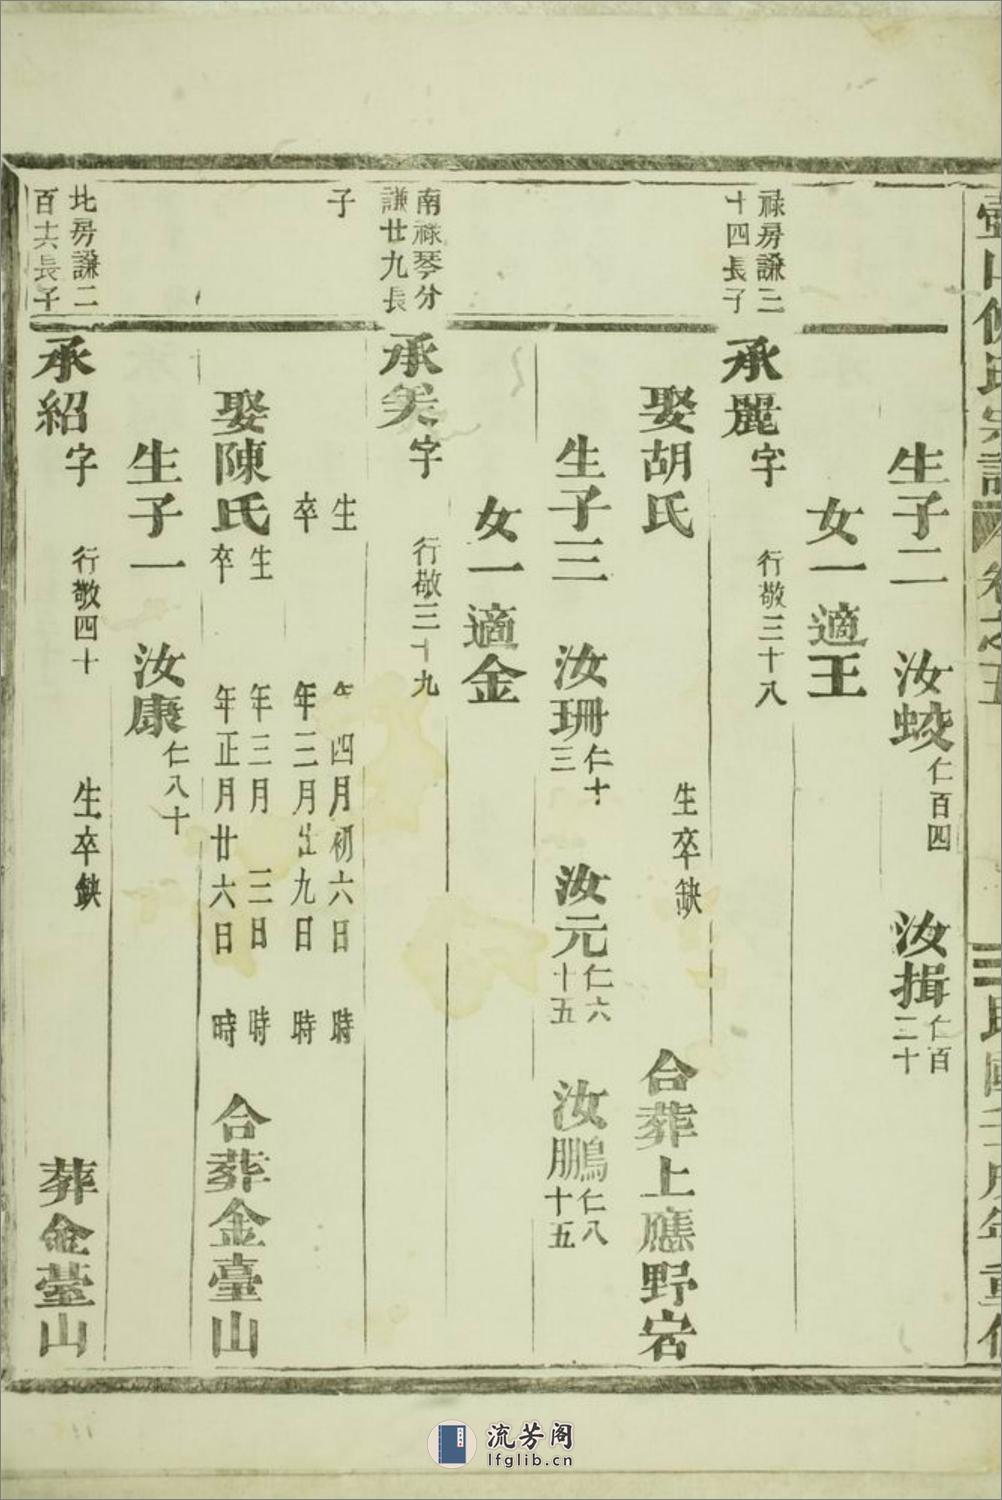 生子二 汝蛟仁百四 汝揖仁百二十
女一適王
祿房謙三十四長子
承麗字 行敬三十八 生卒缺
娶胡氏 合葬上應野宕
生子三 汝珊仁十三 汝元仁六十五 汝鵬仁八十五
女一適金
南祿琴分謙廿九長子
承美字 行敬三十九
生 年四月初六日 時
卒 年三月廿九日 時
娶陳氏 生 年三月 三日 時 卒 年正月廿六日 時 合葬金臺山
生子一 汝康仁八十
北房謙二百六長子
承紹字 行敬四十 生卒缺 葬金臺山
流芳阁
lfglib.cn